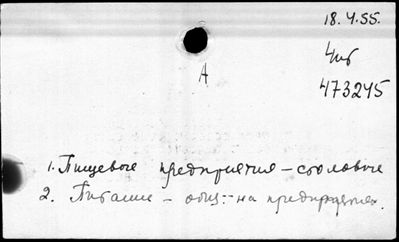 18.4.55.
А
473245
1. Пищевые предприятия – столовые
2. Питание – общ. – на предприятиях.